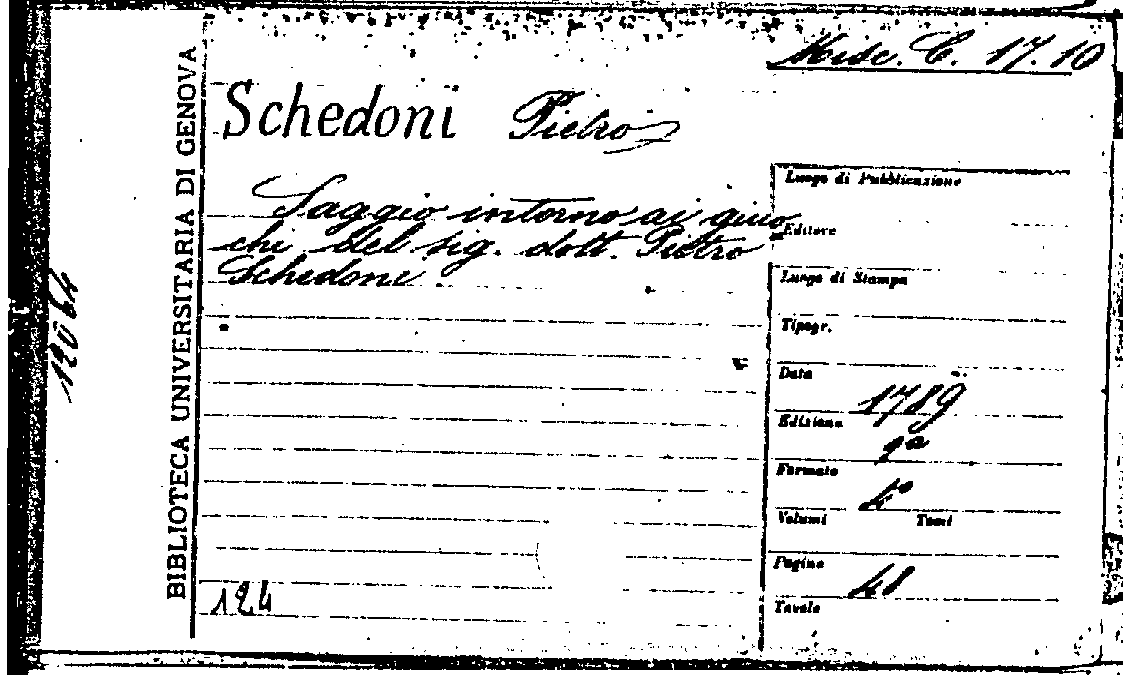 Misc. C. 17.10
Schedoni Pietro
Saggio intorno ai giuo
chi del sig. dott. Pietro
Schedoni.
Luogo di Pubblicazione
Editore
Luogo di Stampa
Tipogr.
Data
1789
Edizione
2a
Formato
4°
Volumi Tomi
Pagine
48
Tavole
124
BIBLIOTECA UNIVERSITARIA DI GENOVA
12064